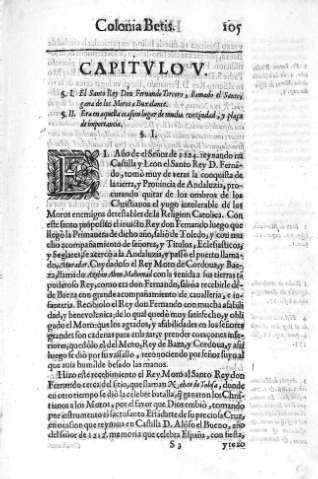 Colonia Betis.
105
CAPITVLO V.
§. I. El Santo Rey Don Fernando Tercero, llamado el Santo,
gana de los Moros a Bucalance.
§. II. Era en aquella ocasion lugar de mucha vezindad, y plaça
de importancia.
§. I.
EL Año de el Señor de 1224. reynando en
Castilla y Leon el Santo Rey D. Fernan-
do, tomò muy de veras la conquista de
la tierra, y Provincia de Andaluzia, pro-
curando quitar de los ombros de los
Christianos el yugo intolerable de los
Moros enemigos detestables de la Religion Catolica. Con
este santo proposito el invicto Rey don Fernando luego que
llegò la Primavera de dicho año, saliò de Toledo, y con mu
cho acompañamiento de señores, y Titulos, Eclesiasticos,
y Seglares, se acercò a la Andaluzia, y passò el puerto llama-
do, Cuydadoso el Rey Moro de Cordova, y Bae-
za, llamado Mahomad con la venida a sus tierras tã
poderoso Rey, como era don Fernando, saliò a recibirle des-
de Baeza con grande acompañamiento de cavalleria, e in-
fanteria. Recibiolo el Rey don Fernando con mucha afabili
dad, y benevolencia; de lo qual quedò muy satisfecho, y obli
gado el Moro: que los agrados, y afabilidades en los señores
grandes son cadenas para enlazar, y prender coraçones infe-
riores, quedòlo el del Moro, Rey de Baeza, y Cordova, y assi
luego se diò por su vassallo, reconociendo por señor suyo al
que mas humilde besado las manos.
Hizo este recibimiento el Rey Moro al Santo Rey don
Fernando cerca del sitio, que llaman Navas de Tolosa, donde
en otro tiempo se diò la celebre batalla, q̃ ganaron los Chris-
tianos a los Moros, por el favor que Dios embiò, tomando
por instrumento el sacrosanto Estãdarte de su preciosa Cruz,
en ocasion que reynava en Castilla D. Alõso el Bueno, año
del señor de 1212. memoria que celebra España, con fiesta,
S 3
y rezo